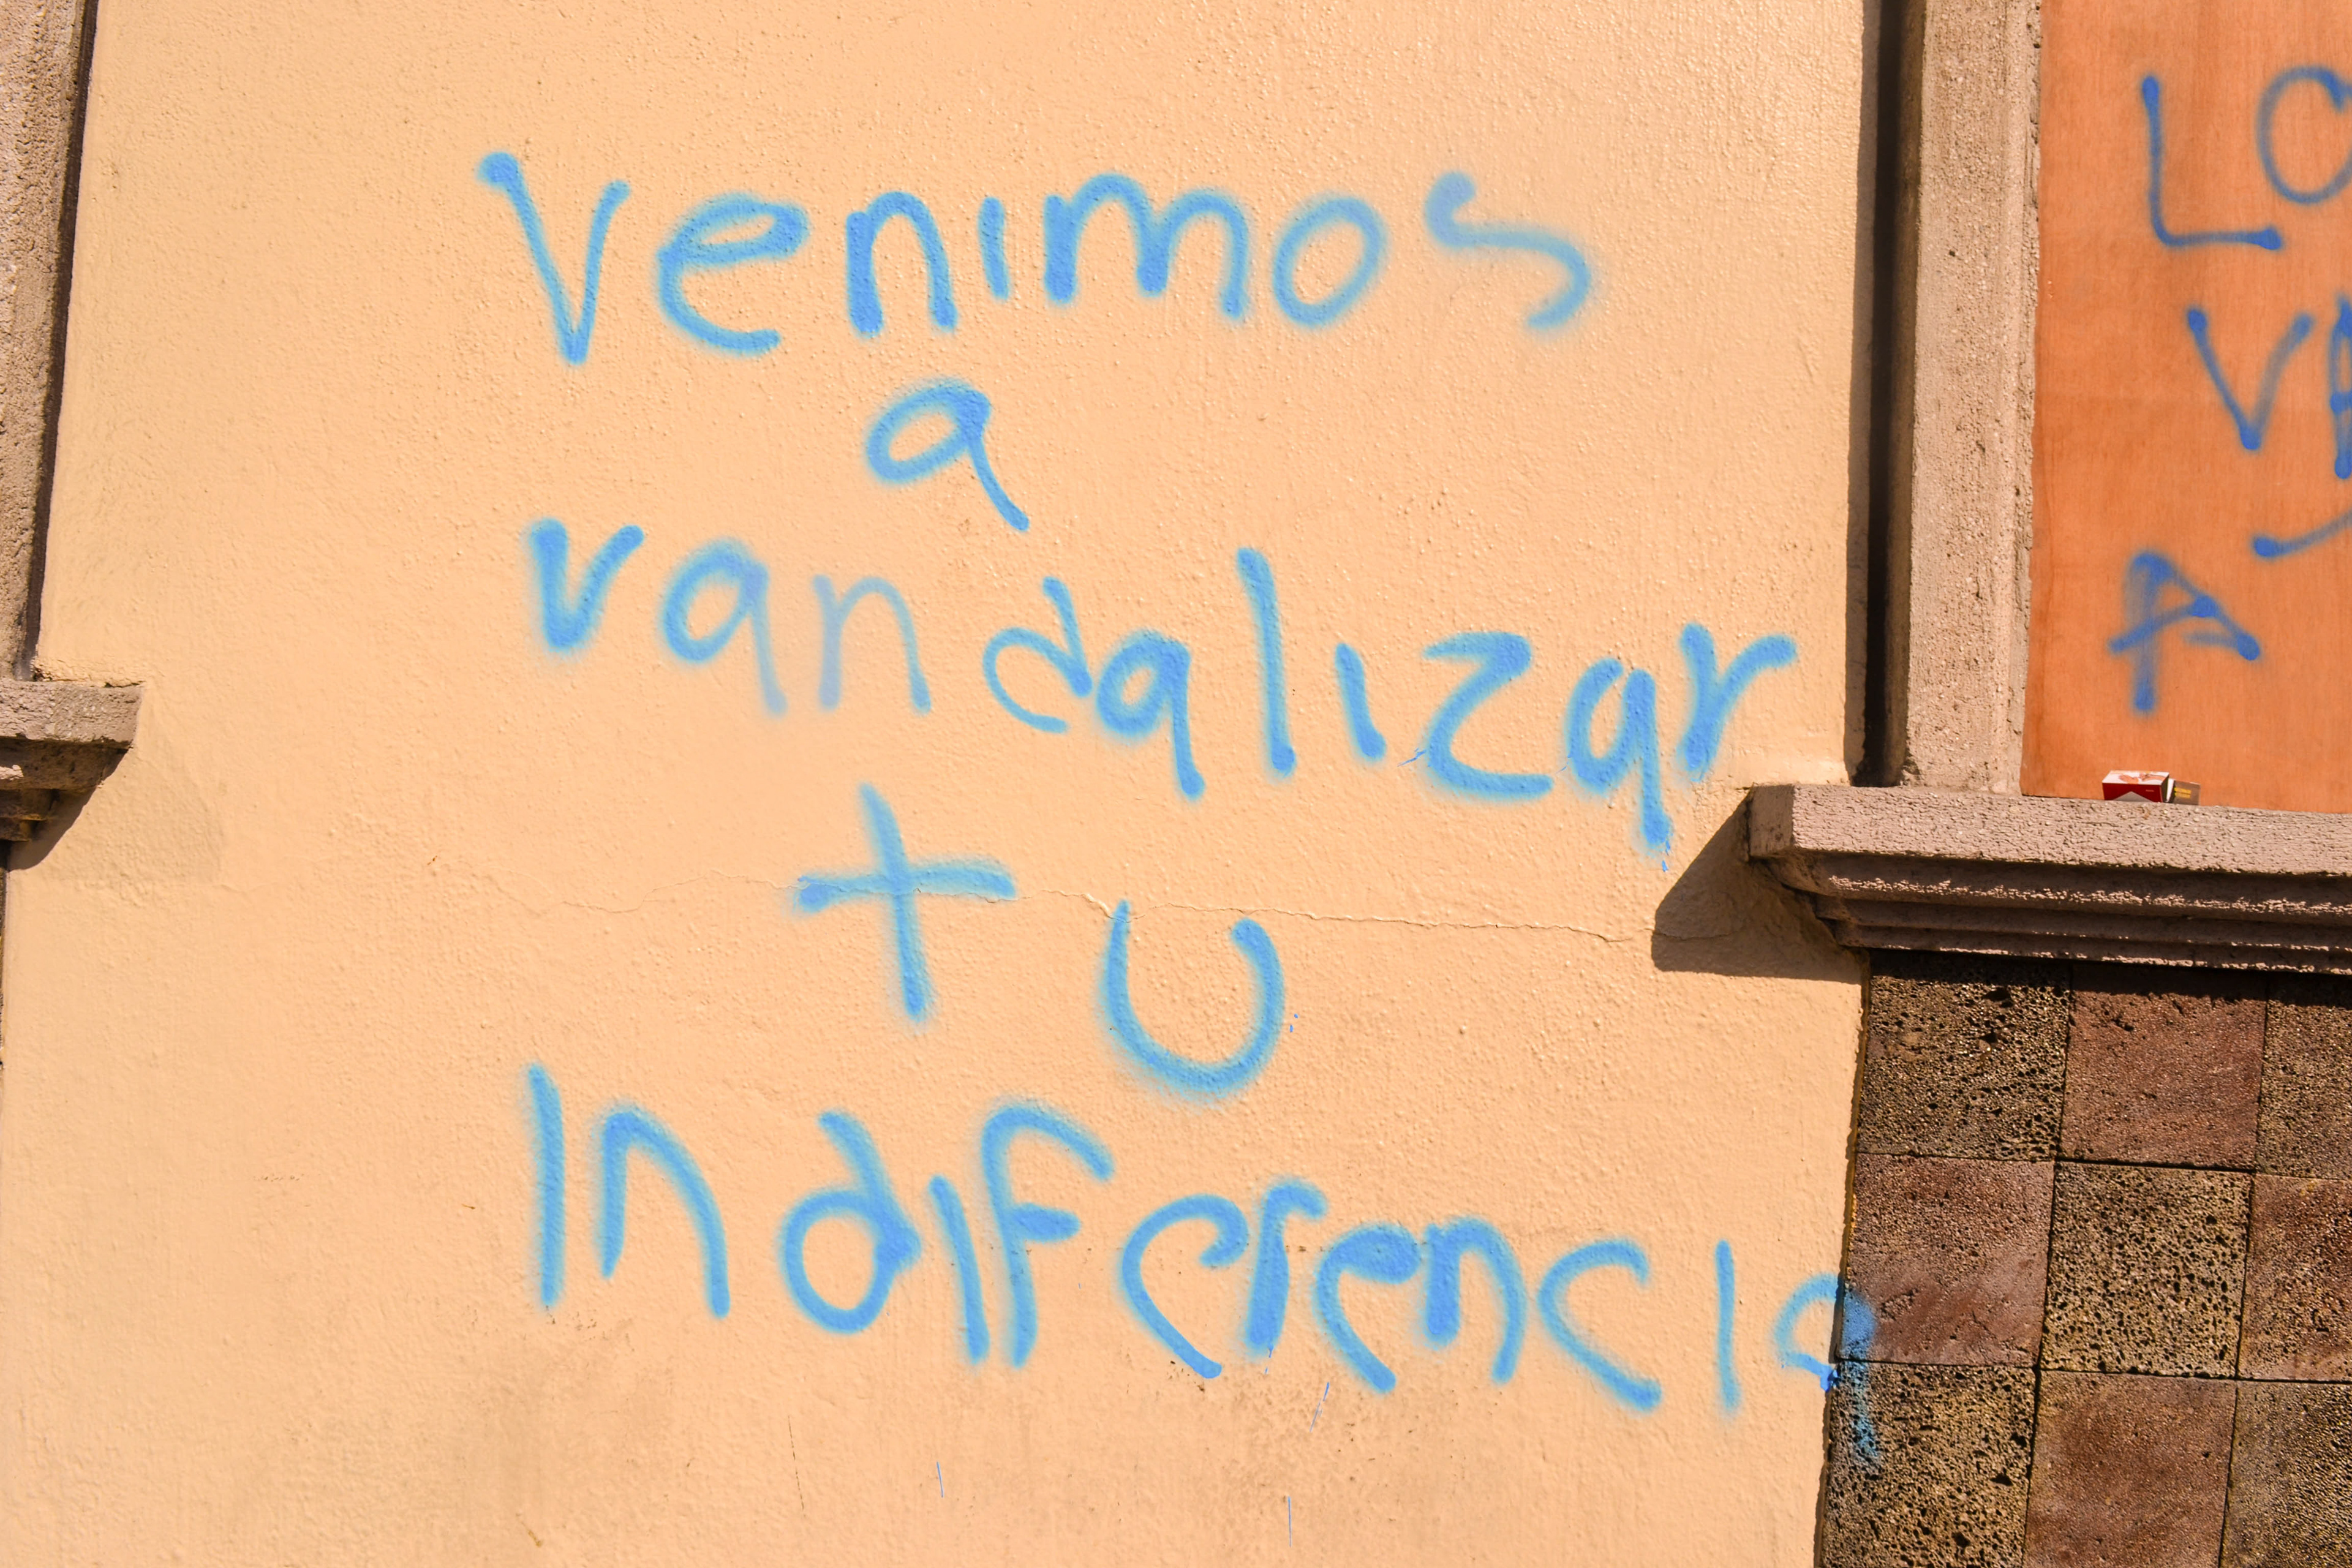 Venimos
a
vandalizar
tu
Indiferencia
LO